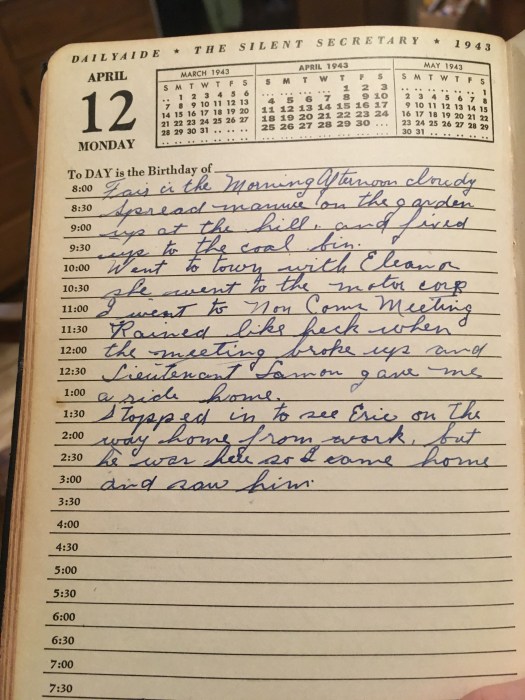 DAILYAIDE * THE SILENT SECRETARY * 1943
APRIL
12
MONDAY
MARCH 1943
S M T W T F S
.. 1 2 3 4 5 6
7 8 9 10 11 12 13
14 15 16 17 18 19 20
21 22 23 24 25 26 27
28 29 30 31 .. .. ..
APRIL 1943
S M T W T F S
.. .. .. .. 1 2 3
4 5 6 7 8 9 10
11 12 13 14 15 16 17
18 19 20 21 22 23 24
25 26 27 28 29 30 ...
MAY 1943
S M T W T F S
.. .. .. .. .. .. 1
2 3 4 5 6 7 8
9 10 11 12 13 14 15
16 17 18 19 20 21 22
23 24 25 26 27 28 29
30 31 .. .. .. .. ..
To DAY is the Birthday of
8:00 Fair in the Morning Afternoon cloudy
8:30 Spread manure on the garden
9:00 up at the hill, and fixed
9:30 up to the coal bin.
10:00 Went to town with Eleanor
10:30 she went to the motor corp
11:00 I went to Non Coms Meeting
11:30 Rained like heck when
12:00 the meeting broke up and
12:30 Lieutenant Lamon gave me
1:00 a ride home.
1:30 Stopped in to see Eric on the
2:00 way home from work, but
2:30 he was here so I came home
3:00 and saw him.
3:30
4:00
4:30
5:00
5:30
6:00
6:30
7:00
7:30